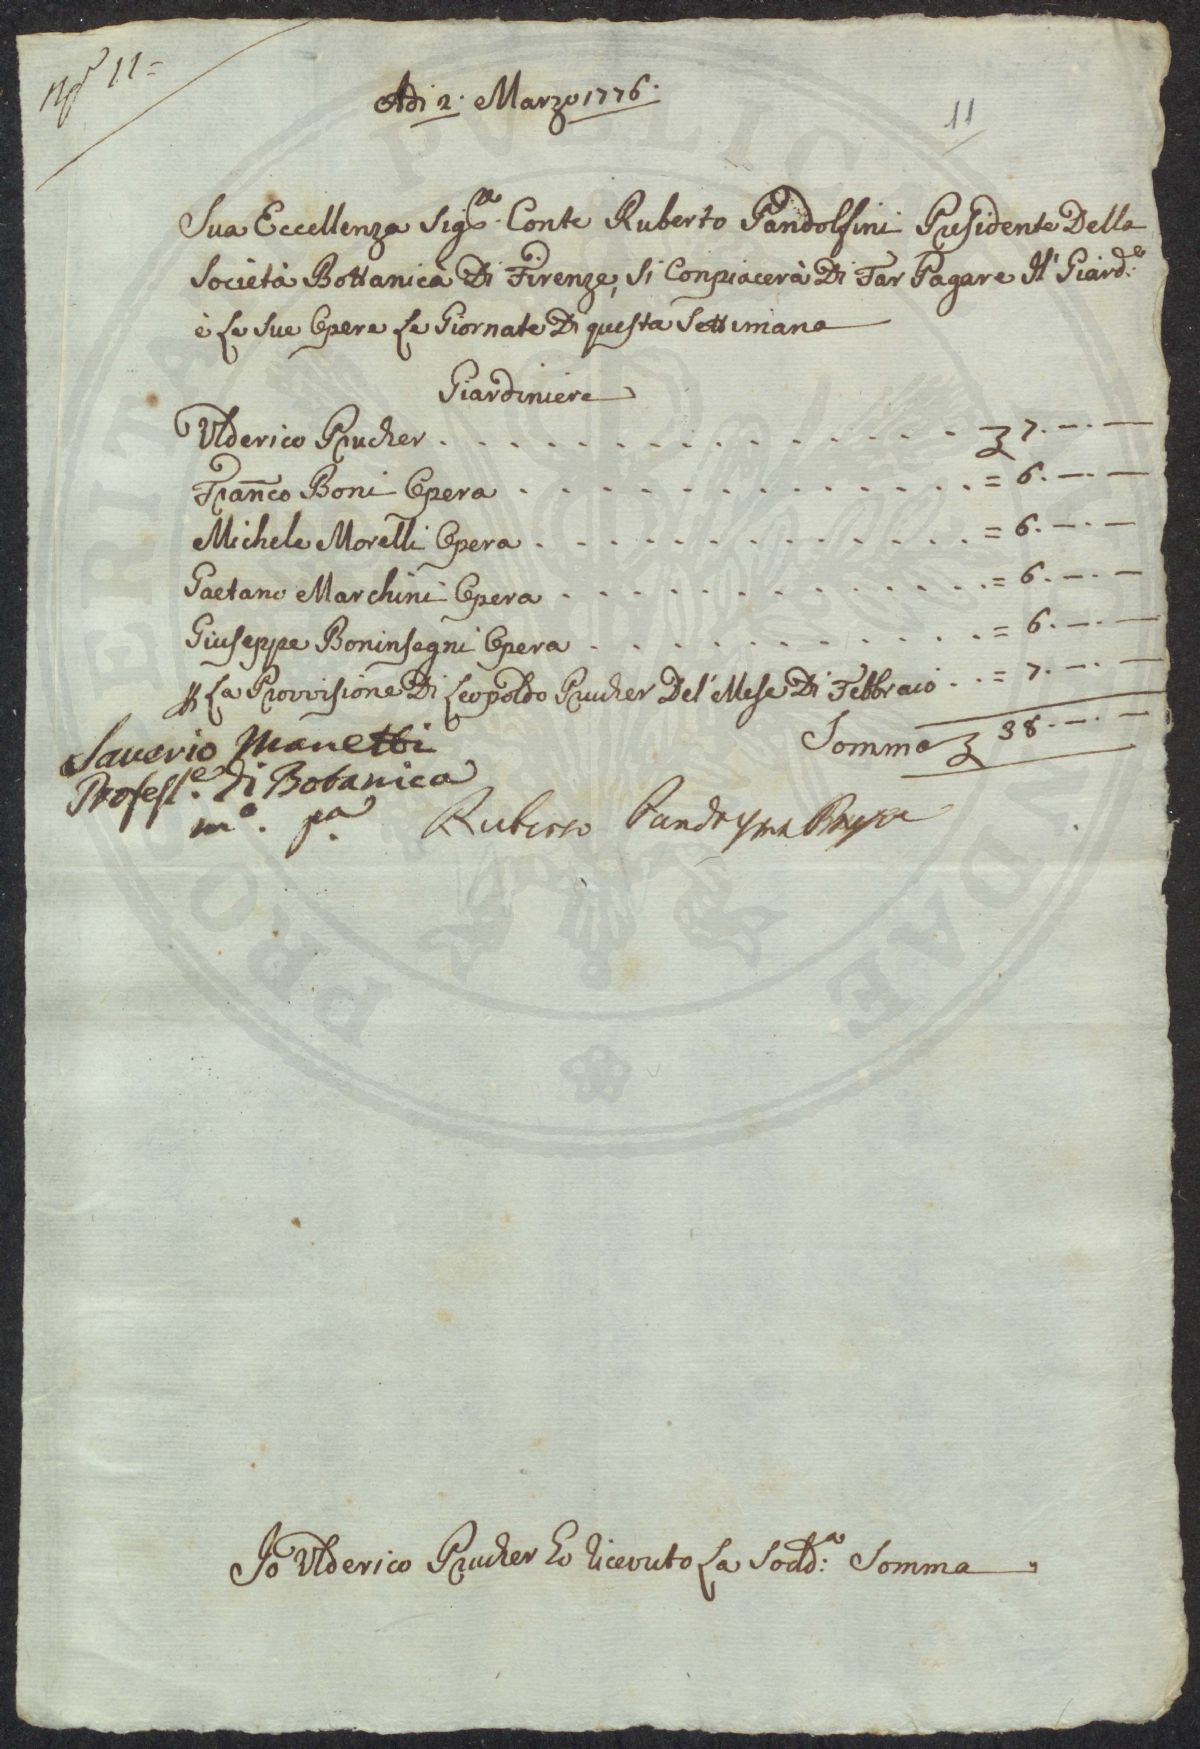 11=
Adi 2. Marzo 1776.
11
Sua Eccellenza Sigre. Conte Ruberto Pandolfini Presidente Della
Società Bottanica Di Firenze, si Conpiacerà Di Far Pagare Il' Giard:e
è Le sue Opere Le Giornate Di questa Settimana
Giardiniere
Ulderico Prucher . . . . . . . . . . . . . . . 7. —. —
Franco Boni Opera . . . . . . . . . . . . = 6. —. —
Michele Morelli Opera . . . . . . . . . . . . = 6. —. —
Gaetano Marchini Opera . . . . . . . . . . . = 6. —. —
Giuseppe Boninsegni Opera . . . . . . . . . . = 6. —. —
La Provvisione Di Leopoldo Prucher Del' Mese Di Febbraio . . = 7. —. —
Somma 38. —. —
Saverio Manetti
Professe. di Botanica
mo. pa.
Ruberto
Io Ulderico Prucher ho ricevuto La Sodd:a Somma
PRO PERITATE PVBLICAE